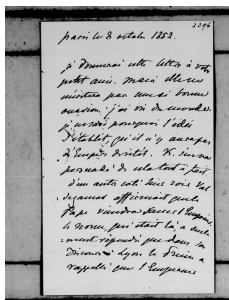 2296
paris le 8 octobre 1852.
je donnerai cette lettre à votre
petit ami. mais elle ne
par aussi bonne
occasion. j'ai vu du monde
je ne sais pourquoi l'idée
s'établit, qu'il n'y aura pas
d'Empire bientôt. K. sera
persuadé de cela tout à fait.
d'un autre coté hier soir Val
affirmait que le
Pape viendra sacrer l'Empereur
le nonce qui était là a seule-
ment répondu que dans son
Discours à Lyon le Prince a
rappelé que l'Empereur